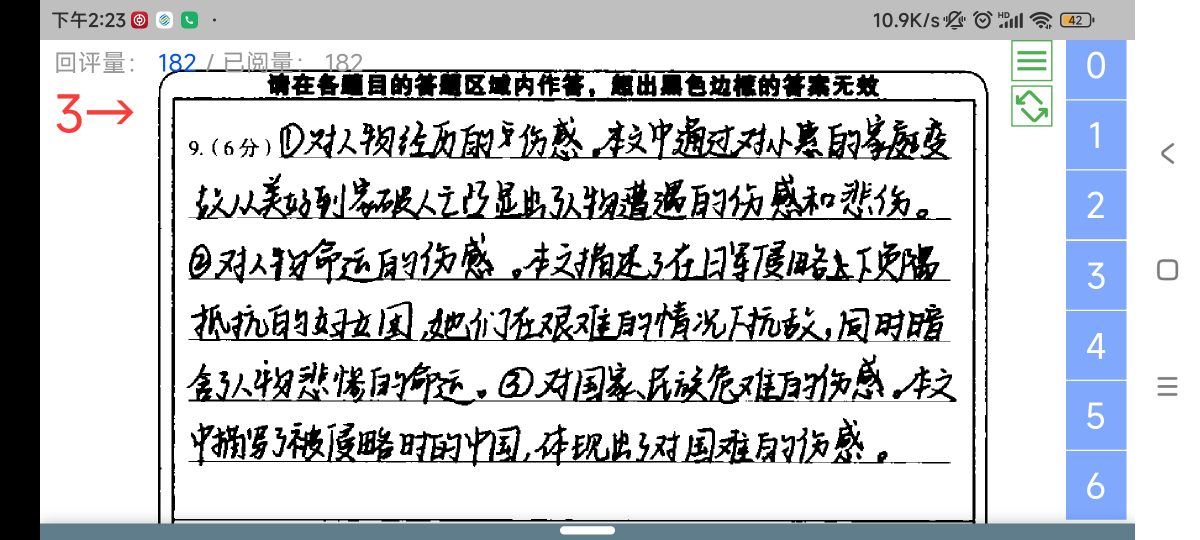 下午2:23
10.9K/s HD 42
回评量： 182 / 已阅量： 182
3→
请在各题目的答题区域内作答，超出黑色边框的答案无效
9.(6分)①对人物经历的伤感。本文中通过对小惠的家庭变
故从美好到家破人亡凸显出了人物遭遇的伤感和悲伤。
②对人物命运的伤感。本文描述了在日军侵略之下负隅
抵抗的妇女团,她们在艰难的情况下抗敌,同时暗
含了人物悲惨的命运。③对国家、民族危难的伤感。本文
中描写了被侵略时的中国,体现出了对国难的伤感。
0
1
2
3
4
5
6